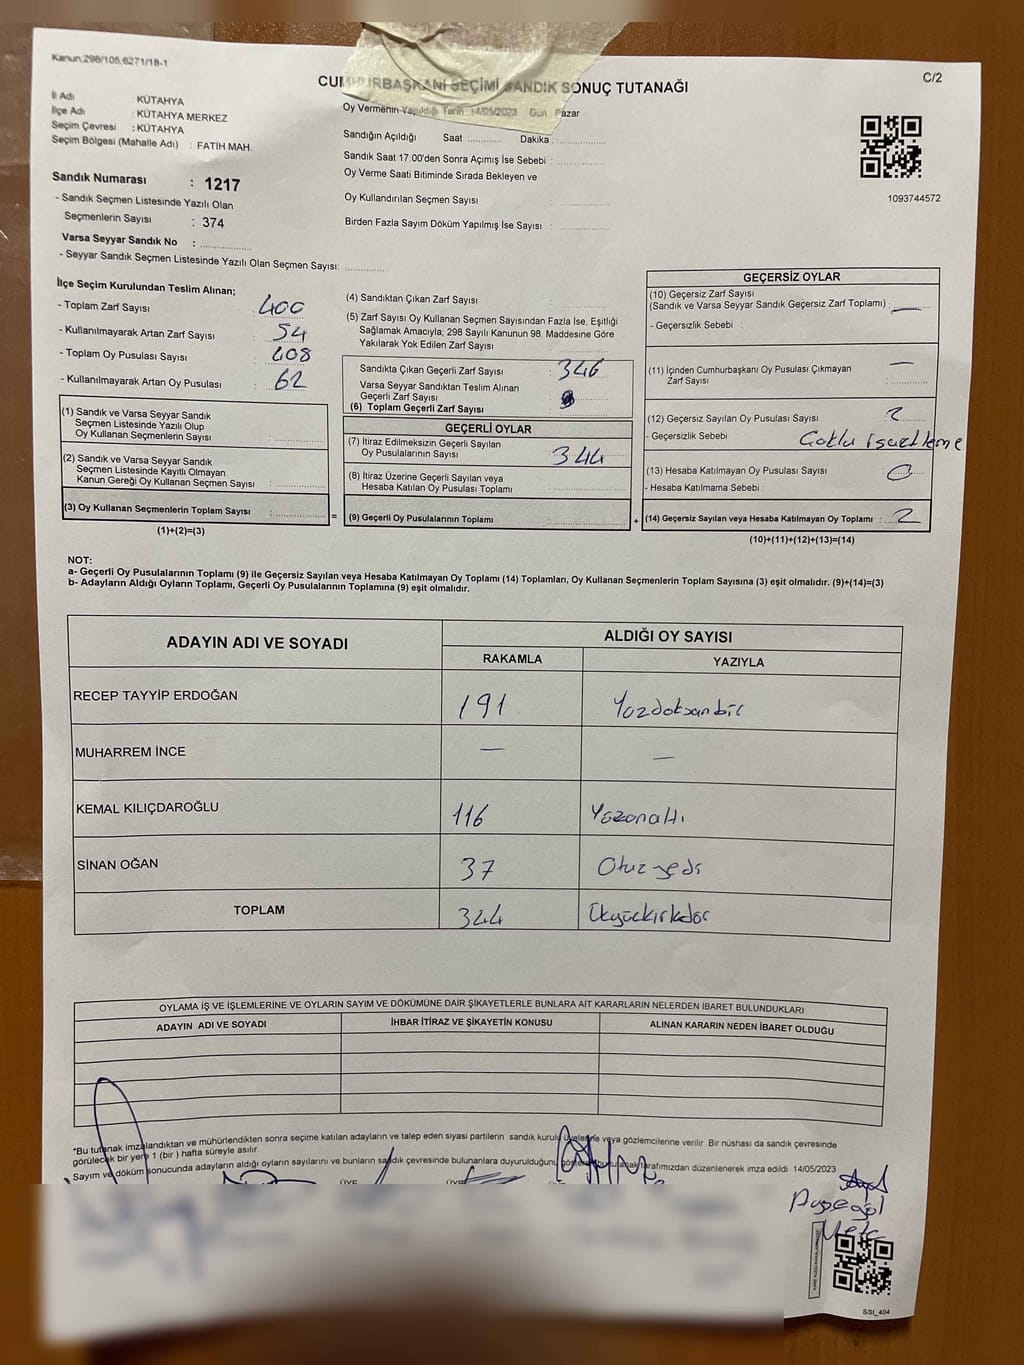 Kanun:298/105;6271/18-1
C/2
CUMHURBAŞKANI SEÇİMİ SANDIK SONUÇ TUTANAĞI
İl Adı : KÜTAHYA
İlçe Adı : KÜTAHYA MERKEZ
Seçim Çevresi : KÜTAHYA
Seçim Bölgesi (Mahalle Adı) : FATİH MAH.
Oy Vermenin Yapıldığı Tarih :14/05/2023 Gün : Pazar
Sandığın Açıldığı Saat :............ Dakika :............
Sandık Saat 17.00'den Sonra Açımış İse Sebebi :............
Oy Verme Saati Bitiminde Sırada Bekleyen ve
Oy Kullandırılan Seçmen Sayısı :............
Birden Fazla Sayım Döküm Yapılmış İse Sayısı :............
1093744572
Sandık Numarası : 1217
- Sandık Seçmen Listesinde Yazılı Olan
Seçmenlerin Sayısı : 374
Varsa Seyyar Sandık No :............
- Seyyar Sandık Seçmen Listesinde Yazılı Olan Seçmen Sayısı:............
İlçe Seçim Kurulundan Teslim Alınan;
- Toplam Zarf Sayısı : 400
- Kullanılmayarak Artan Zarf Sayısı : 54
- Toplam Oy Pusulası Sayısı : 408
- Kullanılmayarak Artan Oy Pusulası : 62
(1) Sandık ve Varsa Seyyar Sandık
Seçmen Listesinde Yazılı Olup
Oy Kullanan Seçmenlerin Sayısı :............
(2) Sandık ve Varsa Seyyar Sandık
Seçmen Listesinde Kayıtlı Olmayan
Kanun Gereği Oy Kullanan Seçmen Sayısı :............
(3) Oy Kullanan Seçmenlerin Toplam Sayısı :............ =
(1)+(2)=(3)
(4) Sandıktan Çıkan Zarf Sayısı :............
(5) Zarf Sayısı Oy Kullanan Seçmen Sayısından Fazla İse, Eşitliği
Sağlamak Amacıyla, 298 Sayılı Kanunun 98. Maddesine Göre
Yakılarak Yok Edilen Zarf Sayısı :............
Sandıkta Çıkan Geçerli Zarf Sayısı : 346
Varsa Seyyar Sandıktan Teslim Alınan
Geçerli Zarf Sayısı :
(6) Toplam Geçerli Zarf Sayısı :............
GEÇERLİ OYLAR
(7) İtiraz Edilmeksizin Geçerli Sayılan
Oy Pusulalarının Sayısı : 344
(8) İtiraz Üzerine Geçerli Sayılan veya
Hesaba Katılan Oy Pusulası Toplamı :............
(9) Geçerli Oy Pusulalarının Toplamı :............ +
GEÇERSİZ OYLAR
(10) Geçersiz Zarf Sayısı
(Sandık ve Varsa Seyyar Sandık Geçersiz Zarf Toplamı) : —
- Geçersizlik Sebebi :
(11) İçinden Cumhurbaşkanı Oy Pusulası Çıkmayan —
Zarf Sayısı :............
(12) Geçersiz Sayılan Oy Pusulası Sayısı : 2
- Geçersizlik Sebebi : Çoklu işaretleme
(13) Hesaba Katılmayan Oy Pusulası Sayısı : 0
- Hesaba Katılmama Sebebi :
(14) Geçersiz Sayılan veya Hesaba Katılmayan Oy Toplamı : 2
(10)+(11)+(12)+(13)=(14)
NOT:
a- Geçerli Oy Pusulalarının Toplamı (9) ile Geçersiz Sayılan veya Hesaba Katılmayan Oy Toplamı (14) Toplamları, Oy Kullanan Seçmenlerin Toplam Sayısına (3) eşit olmalıdır. (9)+(14)=(3)
b- Adayların Aldığı Oyların Toplamı, Geçerli Oy Pusulalarının Toplamına (9) eşit olmalıdır.
ADAYIN ADI VE SOYADI
ALDIĞI OY SAYISI
RAKAMLA YAZIYLA
RECEP TAYYİP ERDOĞAN 191 Yüzdoksanbir
MUHARREM İNCE — —
KEMAL KILIÇDAROĞLU 116 Yüzonaltı
SİNAN OĞAN 37 Otuzyedi
TOPLAM 344 Üçyüzkırkdör
OYLAMA İŞ VE İŞLEMLERİNE VE OYLARIN SAYIM VE DÖKÜMÜNE DAİR ŞİKAYETLERLE BUNLARA AİT KARARLARIN NELERDEN İBARET BULUNDUKLARI
ADAYIN ADI VE SOYADI İHBAR İTİRAZ VE ŞİKAYETİN KONUSU ALINAN KARARIN NEDEN İBARET OLDUĞU
*Bu tutanak imzalandıktan ve mühürlendikten sonra seçime katılan adayların ve talep eden siyasi partilerin sandık kurulu üyelerine veya gözlemcilerine verilir. Bir nüshası da sandık çevresinde
görülecek bir yere 1 (bir) hafta süreyle asılır.
Sayım ve döküm sonucunda adayların aldığı oyların sayılarını ve bunların sandık çevresinde bulunanlara duyurulduğunu gösteren bu tutanak tarafımızdan düzenlenerek imza edildi. 14/05/2023
ÜYE ÜYE
SSI_404